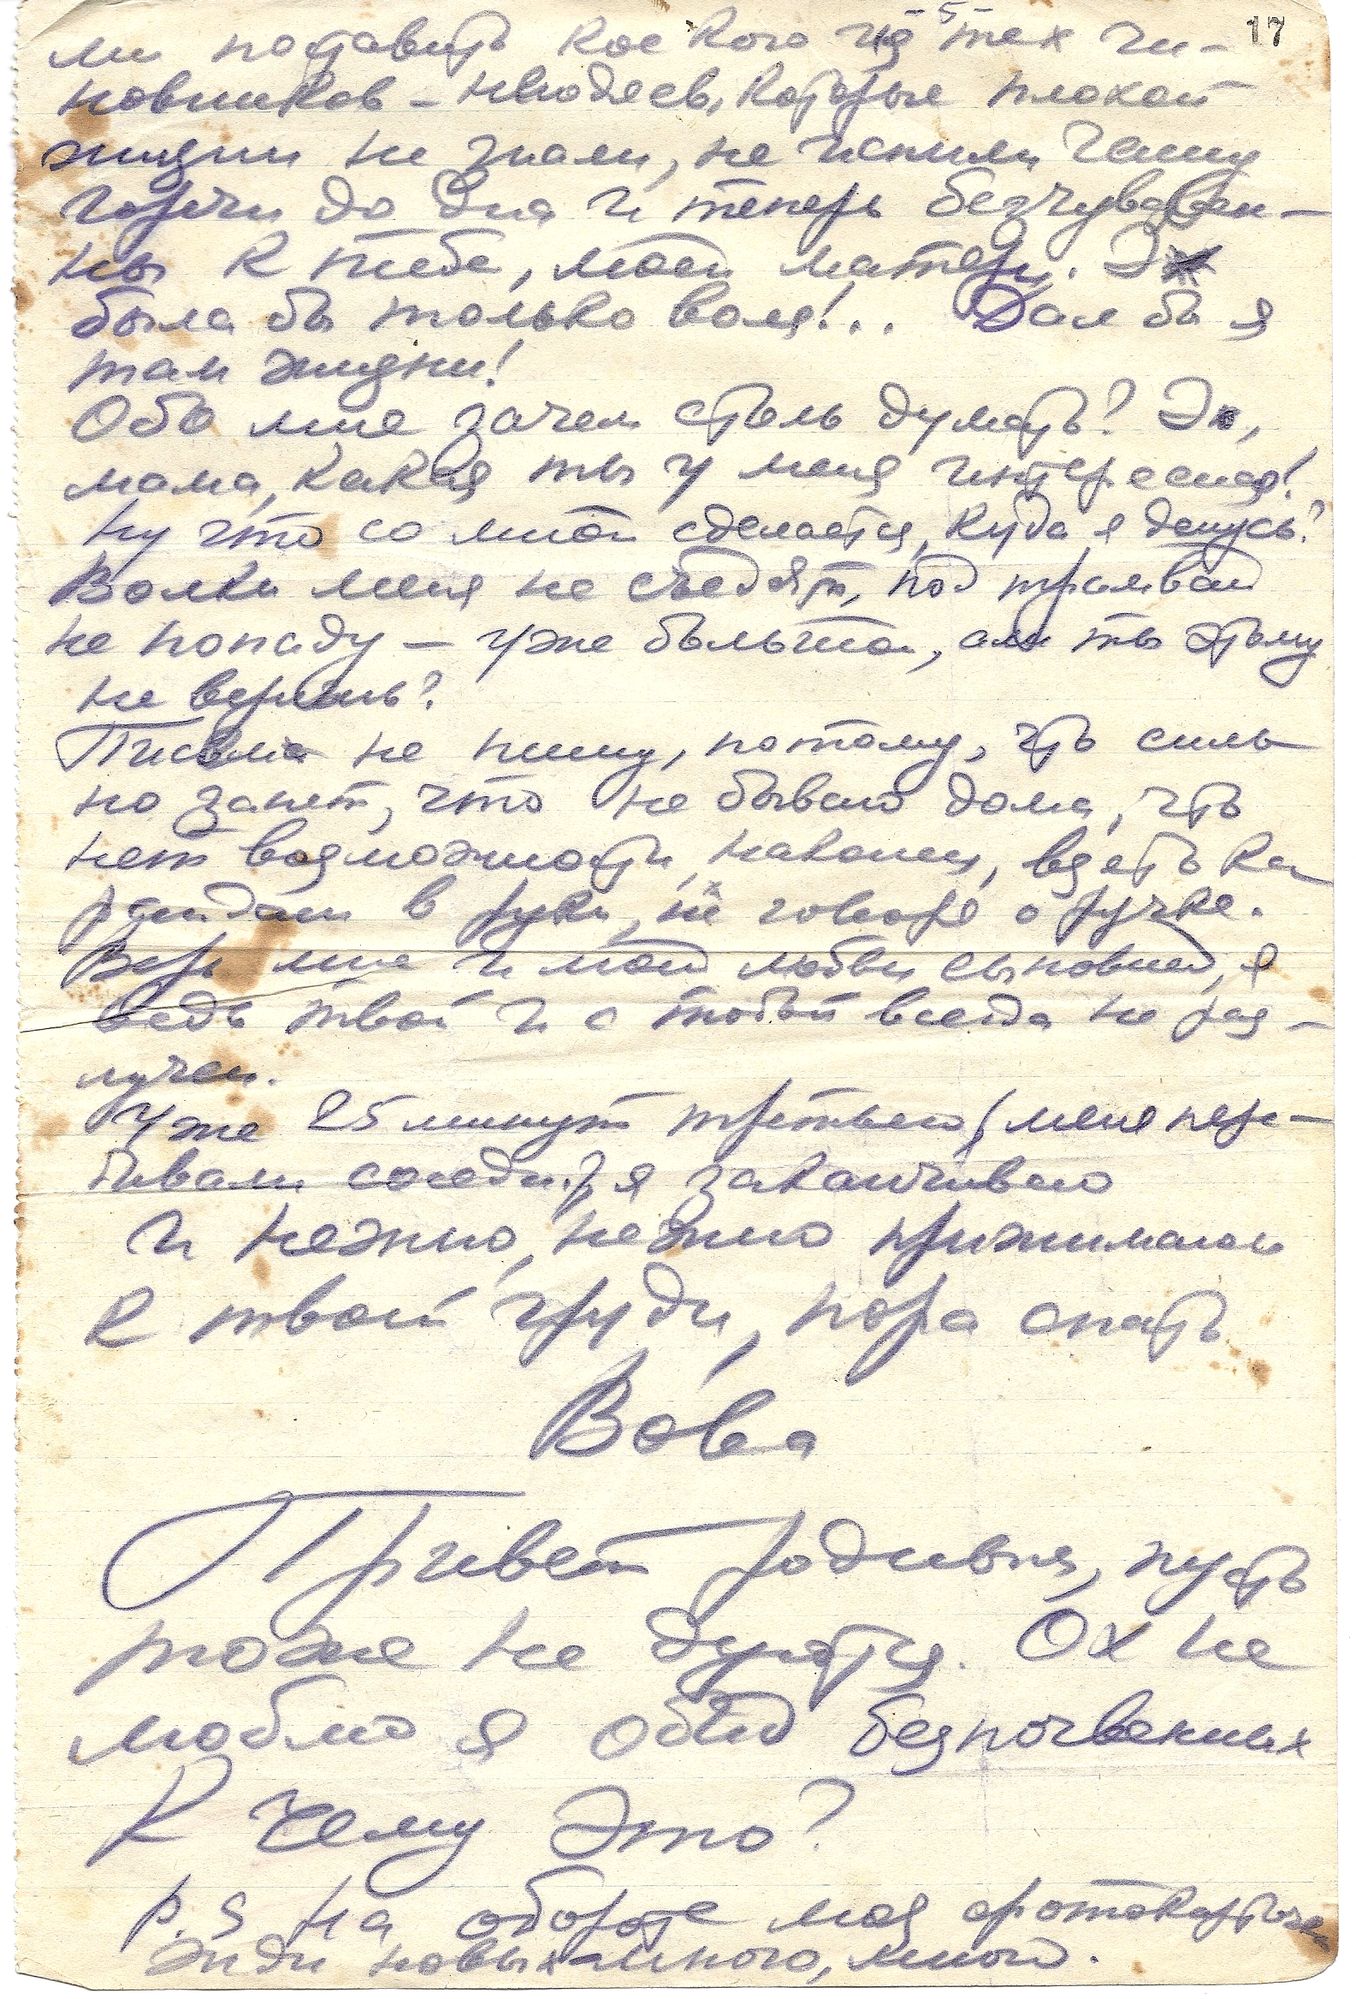 -5-
17
ми поставить кое кого из тех чи-
новников - нелюдей, которые плохой
жизни не знали, не испили чашу
горечи до дна и теперь безчувствен-
ны к тебе, моей матери. Эх
была бы только воля!.. Дал бы я
там жизни!
Обо мне зачем столь думать? Эх,
мама, какая ты у меня интересная!
Ну что со мной сделается, куда я денусь?
Волки меня не съедят, под трамвай
не попаду - уже большой, али ты этому
не веришь?
Письма не пишу, потому, что силь
но занят, что не бываю дома, что
нет возможности, наконец, взять ка
рандаш в руки, не говоря о ручке.
Верь мне и моей любви сыновней, я
ведь твой и с тобой всегда не раз-
лучен.
Уже 25 минут третьего (меня пере-
бивали соседи.) я заканчиваю
и нежно, нежно прижимаюсь
к твоей груди, пора спать
Вова
Привет родивья, пусть
тоже не дуется. Ох не
люблю я обид безпочвенных
К чему это?
P.S На обороте моя фотокарточка
жди новых много, много.